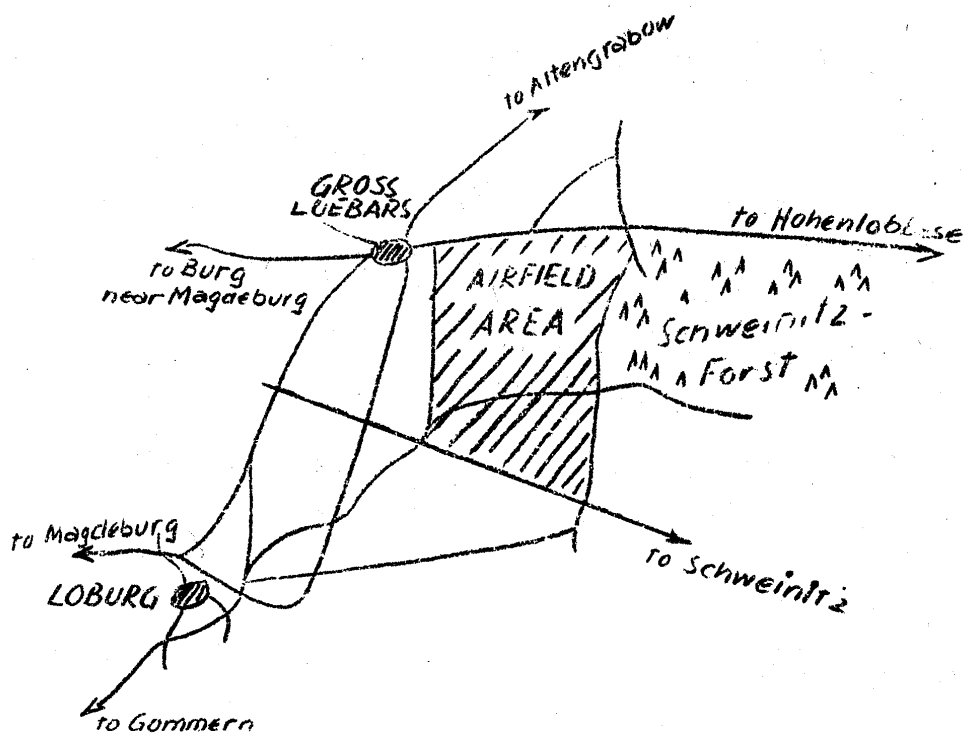 to Altengrabow
GROSS
LUEBARS
to Hohenlobbese
to Burg
near Magdeburg
AIRFIELD
AREA
Schweinitz-
Forst
to Magdeburg
LOBURG
to Schweinitz
to Gommern